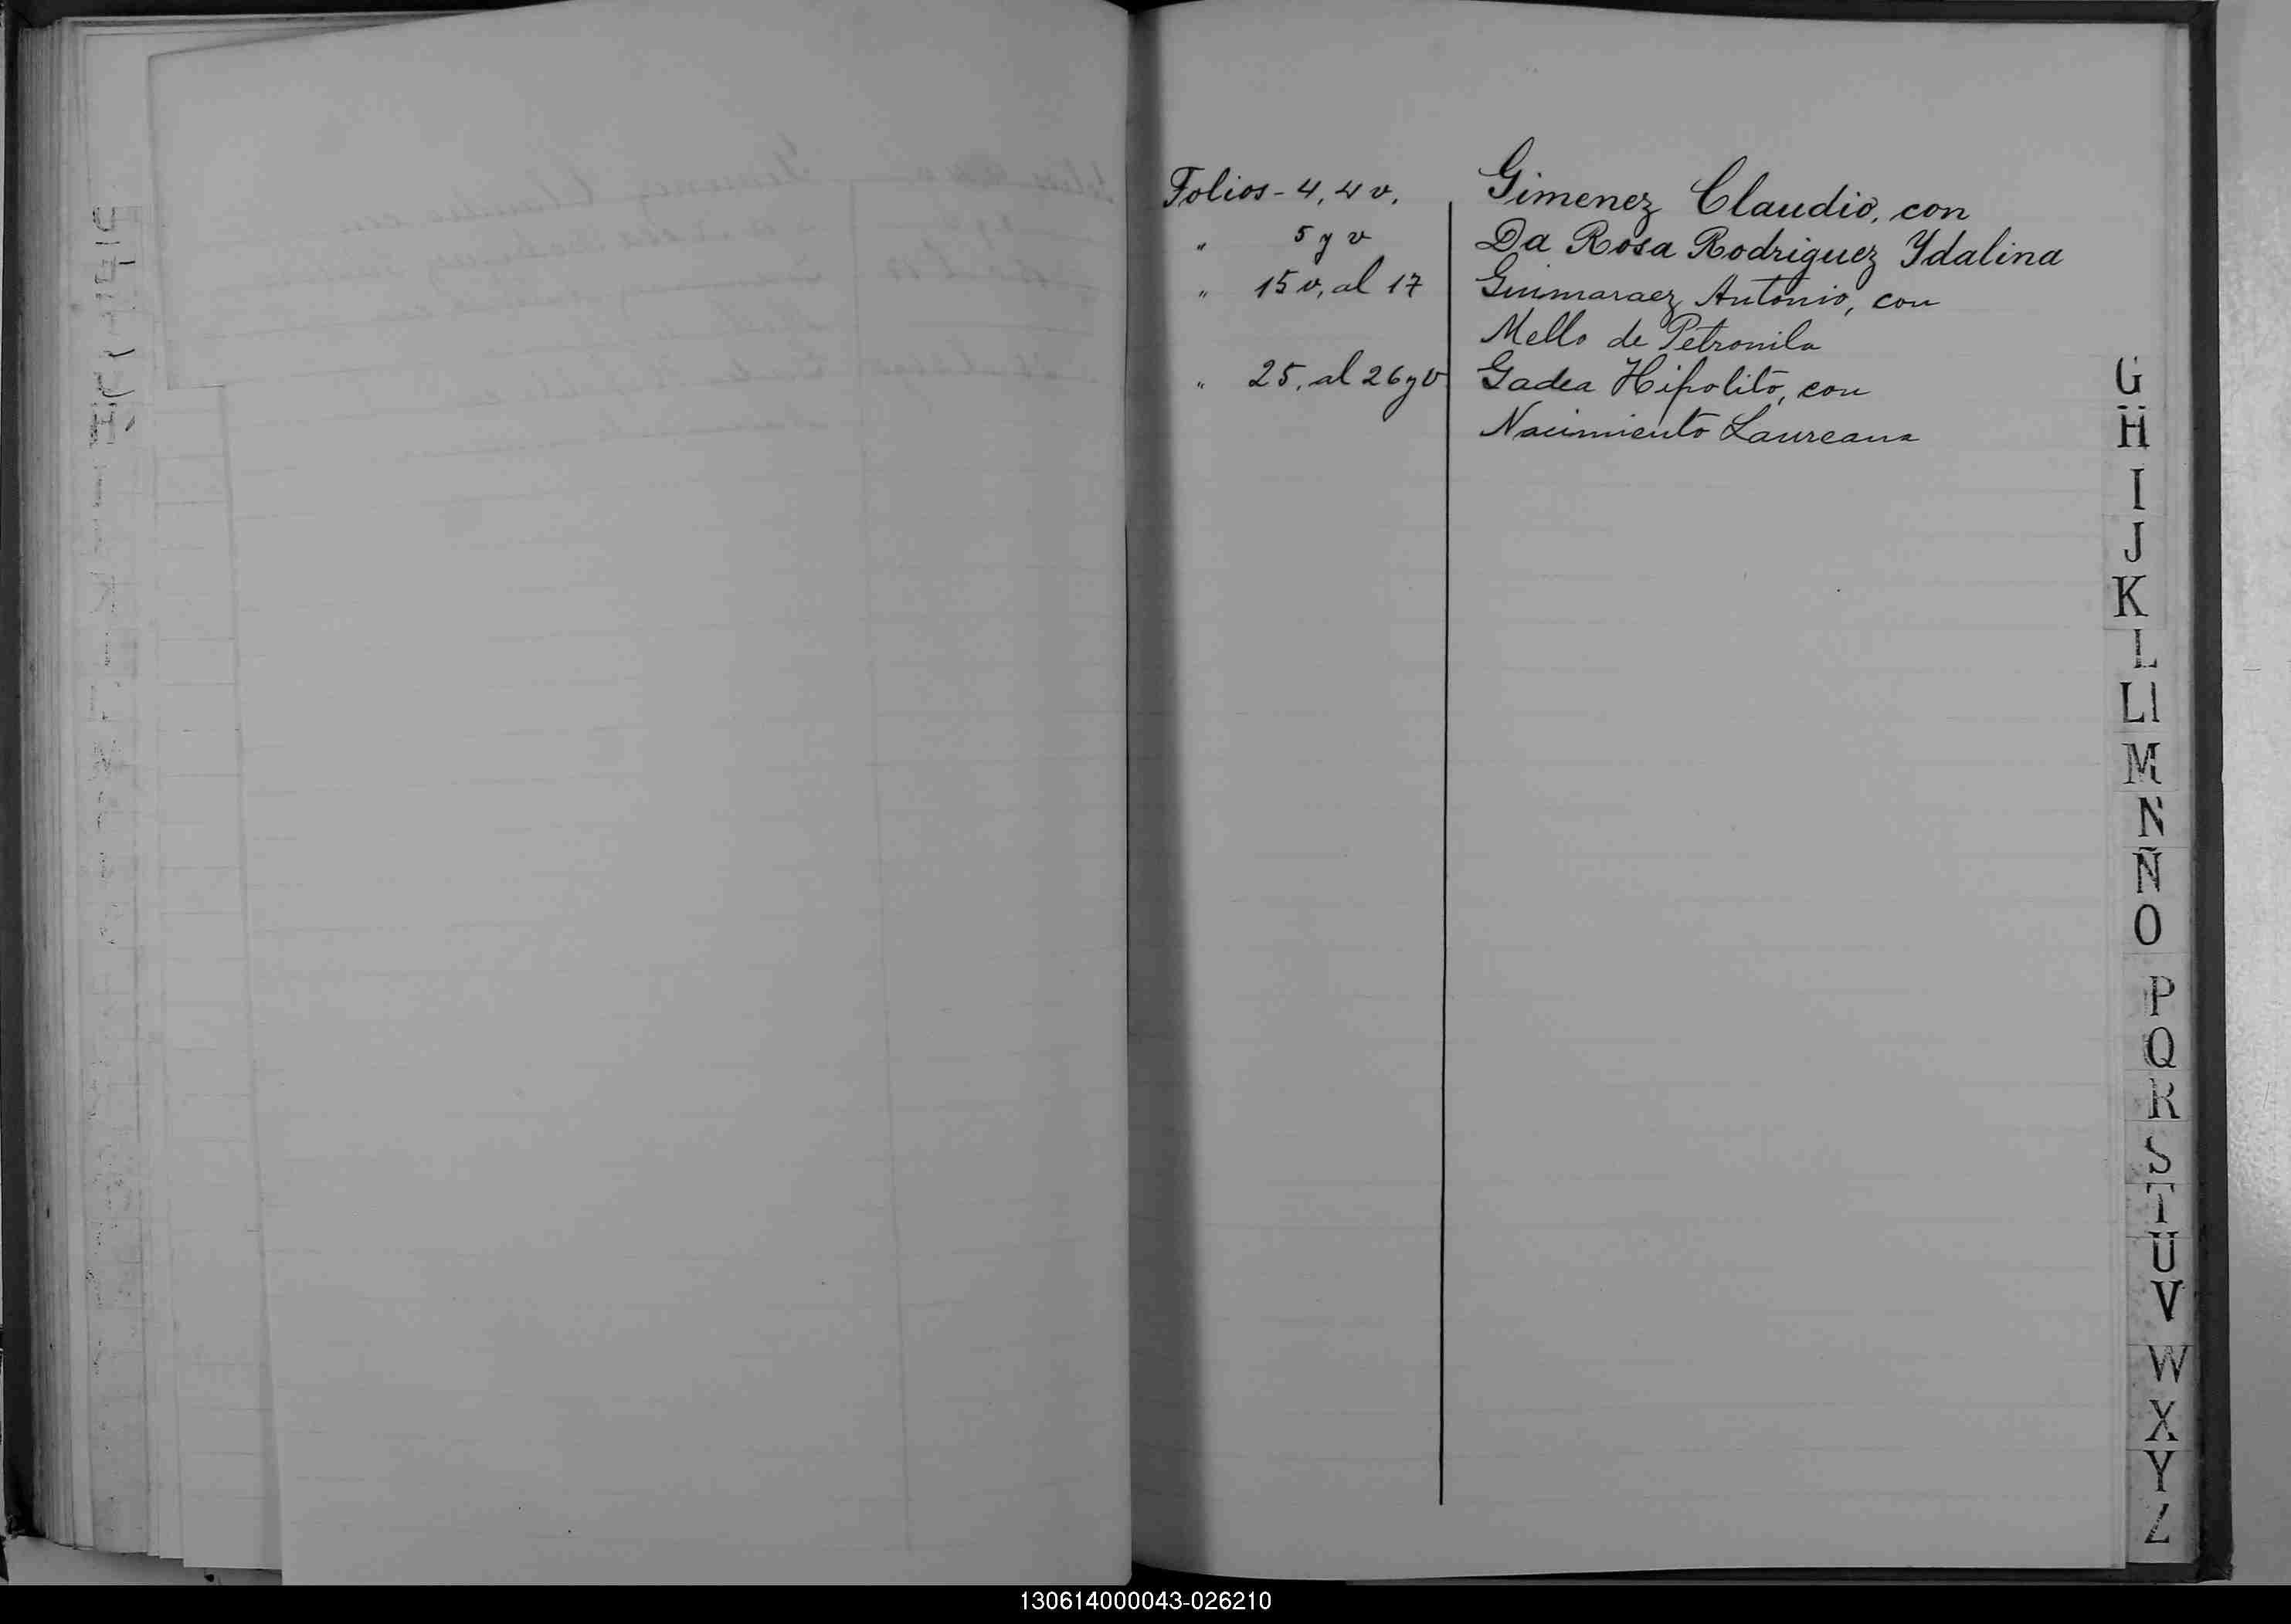 Folios - 4, 4 v. Gimenez Claudio, con
" 5 y v Da Rosa Rodriguez Ydalina
" 15 v, al 17 Guimaraez Antonio, con
Mello de Petronila
" 25, al 26 y v Gadea Hipolito, con
Nacimiento Laureana
G
H
I
J
K
L
Ll
M
N
Ñ
O
P
Q
R
S
T
U
V
W
X
Y
Z
130614000043-026210